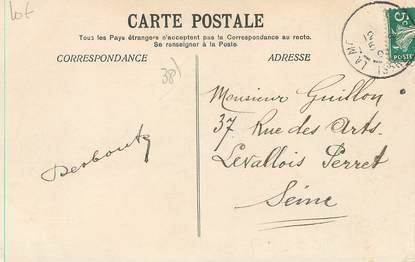 Lot
CARTE POSTALE
Tous les Pays étrangers n'acceptent pas la Correspondance au recto.
Se renseigner à la Poste.
CORRESPONDANCE
ADRESSE
38
Monsieur Guillon
37 Rue des Arts.
Levallois Perret
Seine
Desboutz
5c
POSTES